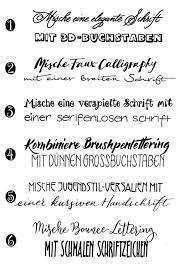 1 Mische eine elegante Schrift
MIT 3D-BUCHSTABEN
2 Mische Faux Calligraphy
mit einer Breiten Schrift
3 Mische eine verspielte Schrift mit
einer serifenlosen schrift
4 Kombiniere Brushpenlettering
MIT DÜNNEN GROSSBUCHSTABEN
5 MISCHE JUGENDSTIL-VERSALIEN MIT
einer kursiven Handschrift
6 Mische Bounce-Lettering
MIT SCHMALEN SCHRIFTZEICHEN